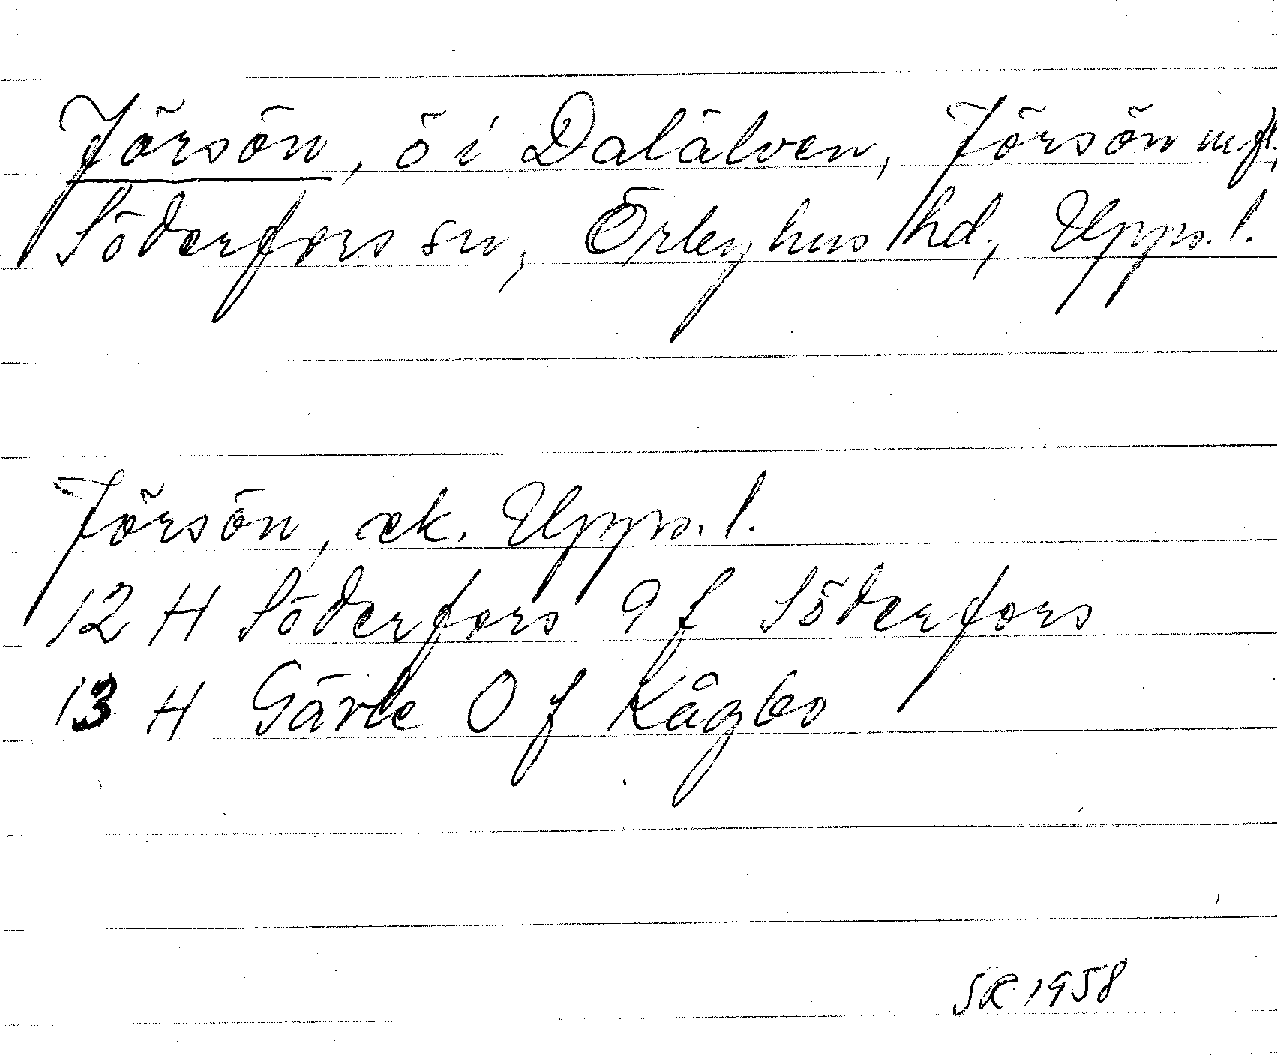 Jörsön, ö i Dalälven, Jörsön m fl.,
Söderfors sn, Örbyhus hd, Upps. l.
Jörsön, ek. Upps. l.
12 H Söderfors 9 f Söderfors
13 H Gävle 0 f Kågbo
SR 1958